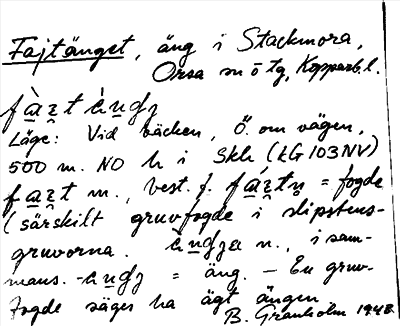 Fajtänget, äng i Stackmora,
Orsa sn o tg, Kopparb. l.
Läge: Vid bäcken, Ö. om vägen,
500 m. NO h i Skh (EG 103 NV)
m., best. f. = fogde
(särskilt gruvfogde i slipstens-
gruvorna. n., i sam-
mans. = äng. – En gruv-
fogde säges ha ägt ängen.
B. Granholm 1948.